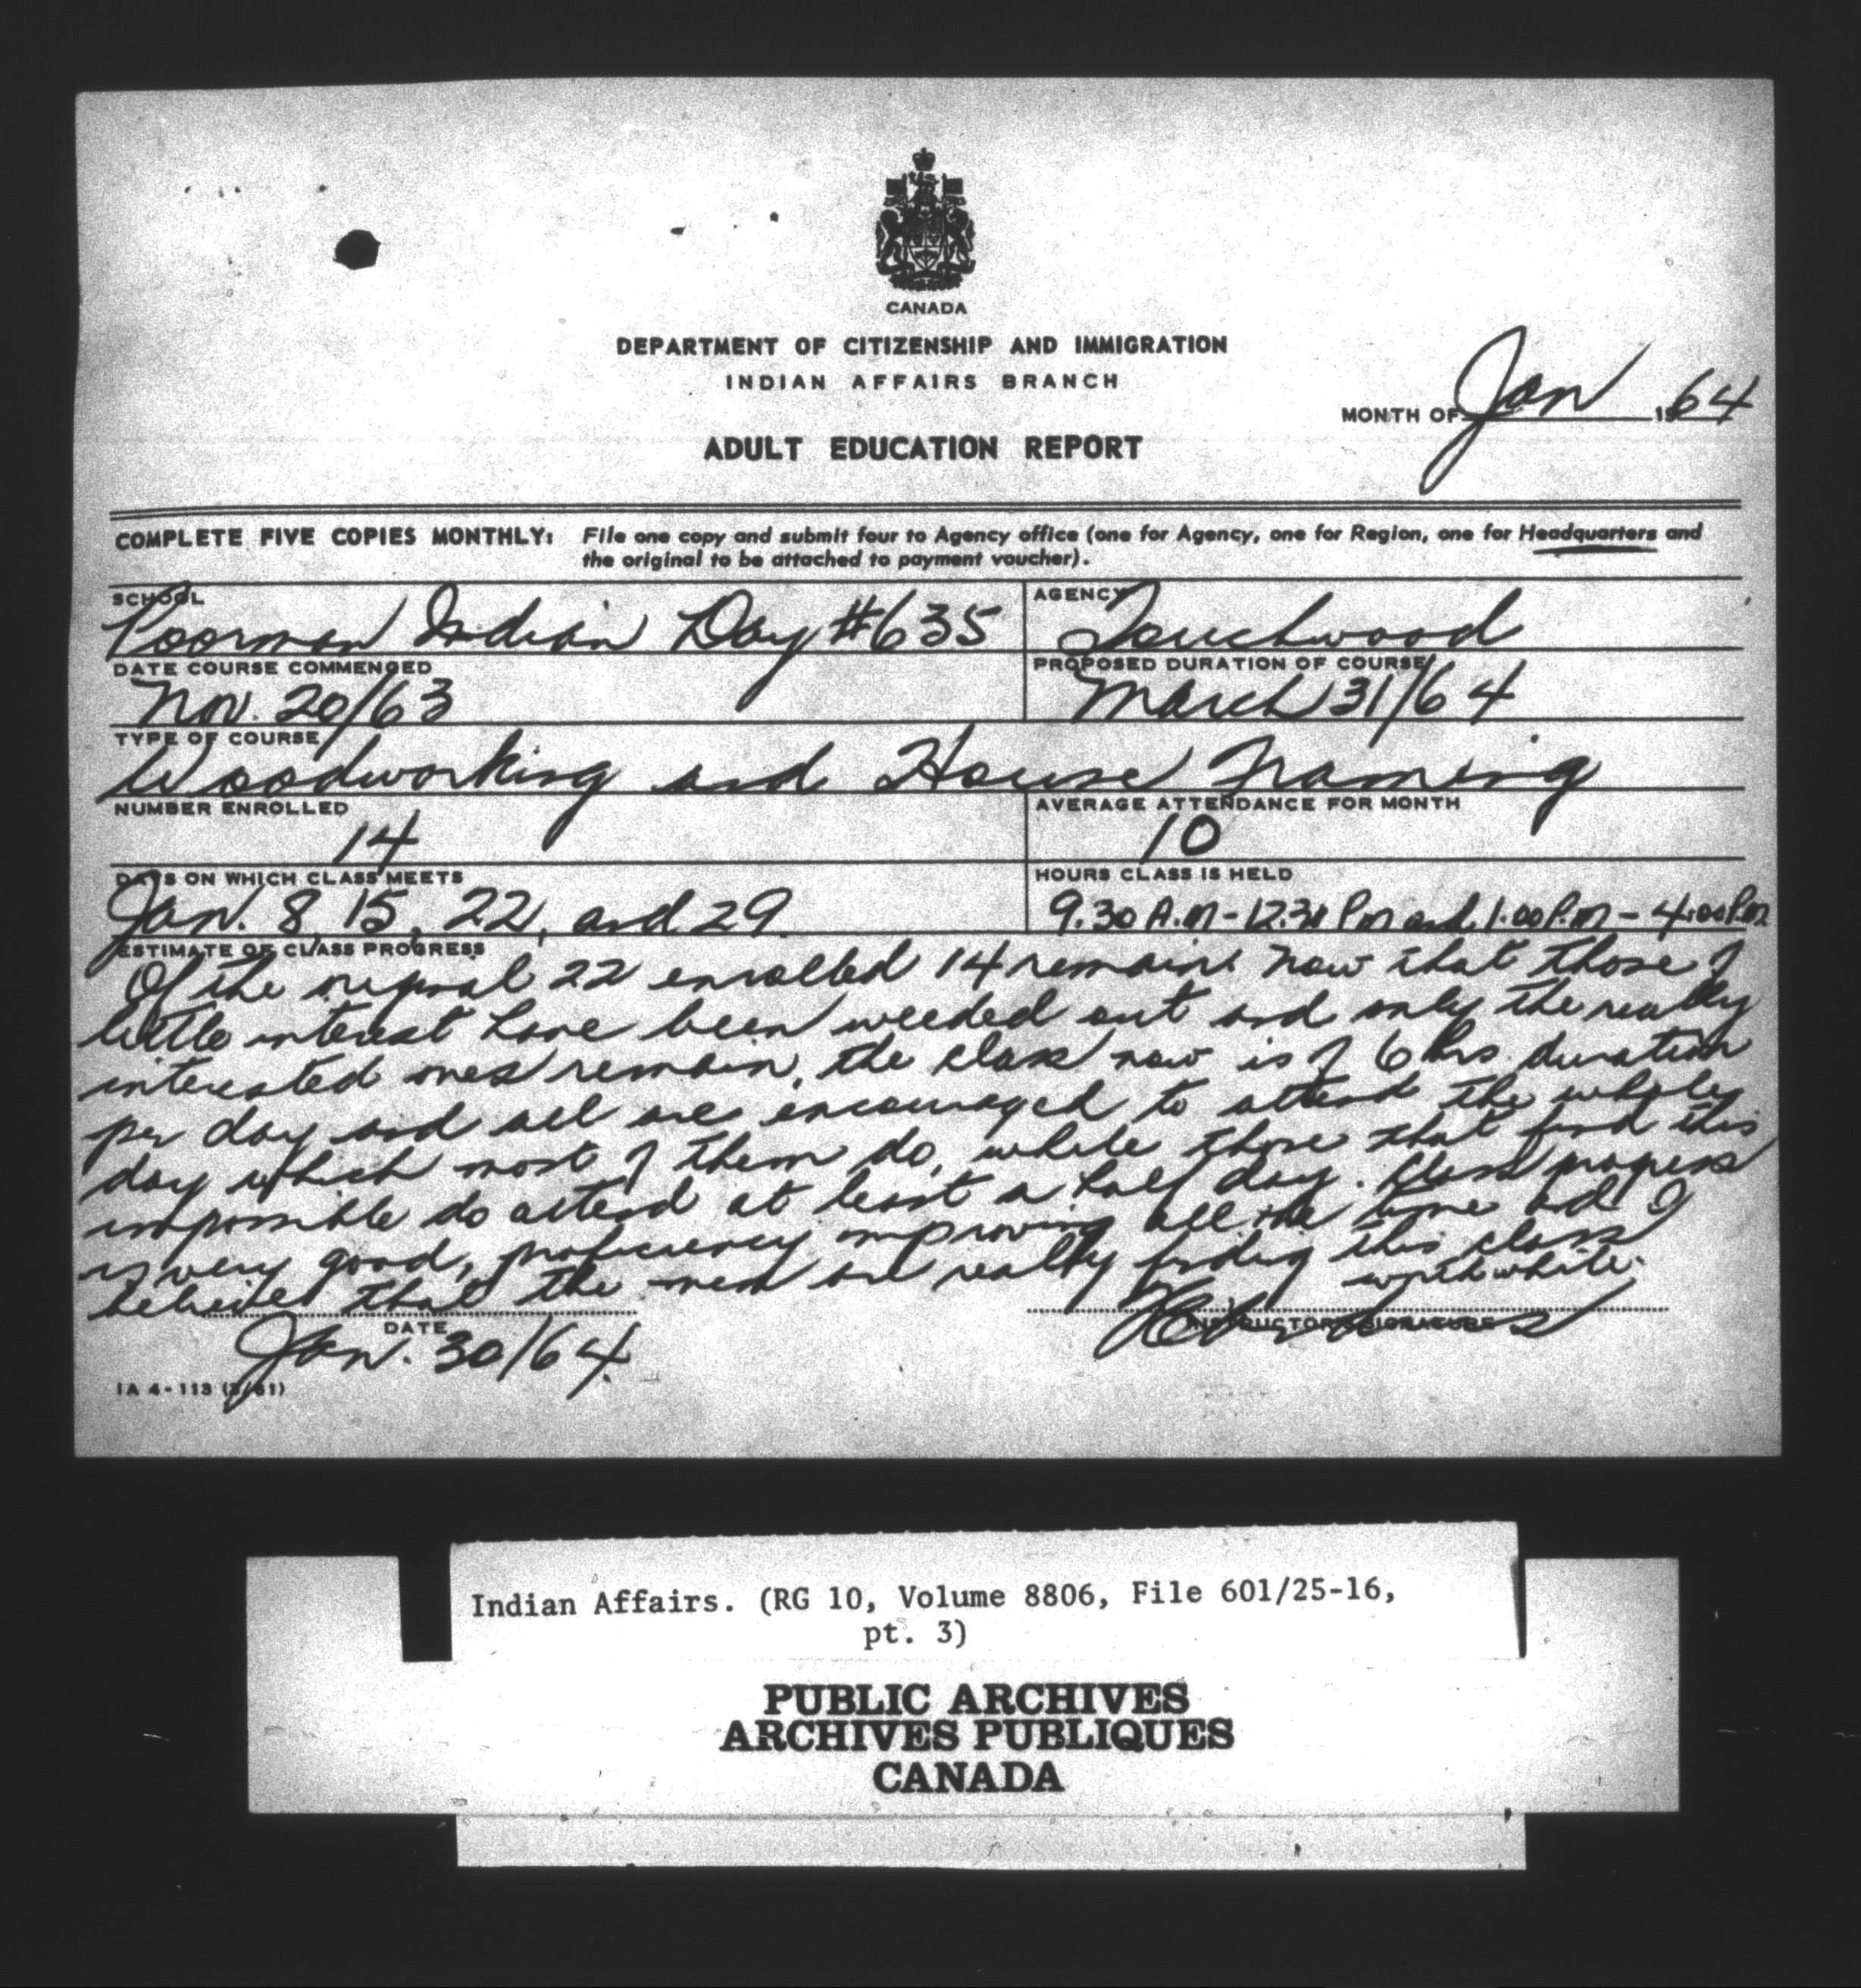 CANADA
DEPARTMENT OF CITIZENSHIP AND IMMIGRATION
INDIAN AFFAIRS BRANCH
MONTH OF Jan 1964
ADULT EDUCATION REPORT
COMPLETE FIVE COPIES MONTHLY: File one copy and submit four to Agency office (one for Agency, one for Region, one for Headquarters and
the original to be attached to payment voucher).
SCHOOL
Poorman Indian Day #635
AGENCY
Touchwood
DATE COURSE COMMENCED
Nov. 20/63
PROPOSED DURATION OF COURSE
March 31/64
TYPE OF COURSE
Woodworking and House Framing
NUMBER ENROLLED
14
AVERAGE ATTENDANCE FOR MONTH
10
DAYS ON WHICH CLASS MEETS
Jan. 8, 15, 22, and 29.
HOURS CLASS IS HELD
9.30 A.M - 12.30 P.M and 1.00 P.M - 4:00 P.M
ESTIMATE OF CLASS PROGRESS
Of the original 22 enrolled 14 remain. Now that those of
little interest have been weeded out and only the really
interested ones remain, the class now is of 6 hrs. duration
per day and all are encouraged to attend the whole
day which most of them do, while those that find this
impossible do attend at least a half day. Class progress
is very good, proficiency improving all the time and I
believe that the men are really finding this class
worthwhile.
DATE
Jan. 30/64.
INSTRUCTOR'S SIGNATURE
IA 4-113 (3/61)
Indian Affairs. (RG 10, Volume 8806, File 601/25-16,
pt. 3)
PUBLIC ARCHIVES
ARCHIVES PUBLIQUES
CANADA